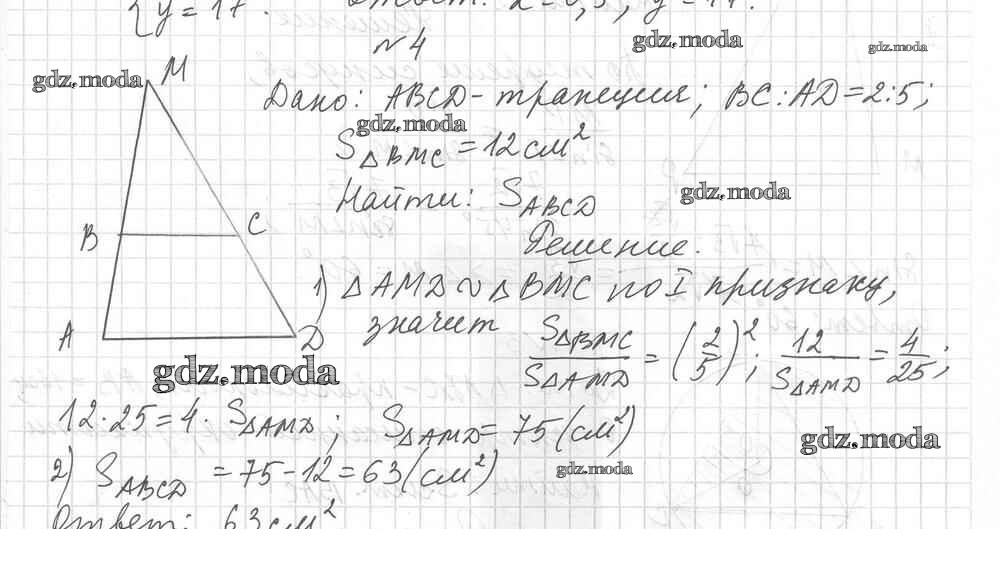 y = 17. Ответ: x = 0,5; y = 17.
№4
gdz.moda
gdz.moda
gdz.moda
M
Дано: ABCD - трапеция; BC : AD = 2:5;
gdz.moda
S△BMC = 12 см²
Найти: SABCD
gdz.moda
B C
Решение.
1) △AMD ∾ △BMC по I признаку,
A D
значит S△BMC / S△AMD = (2/5)²; 12 / S△AMD = 4/25;
gdz.moda
12·25 = 4· S△AMD; S△AMD = 75 (см²)
gdz.moda
2) SABCD = 75 - 12 = 63 (см²)
gdz.moda
Ответ: 63 см²